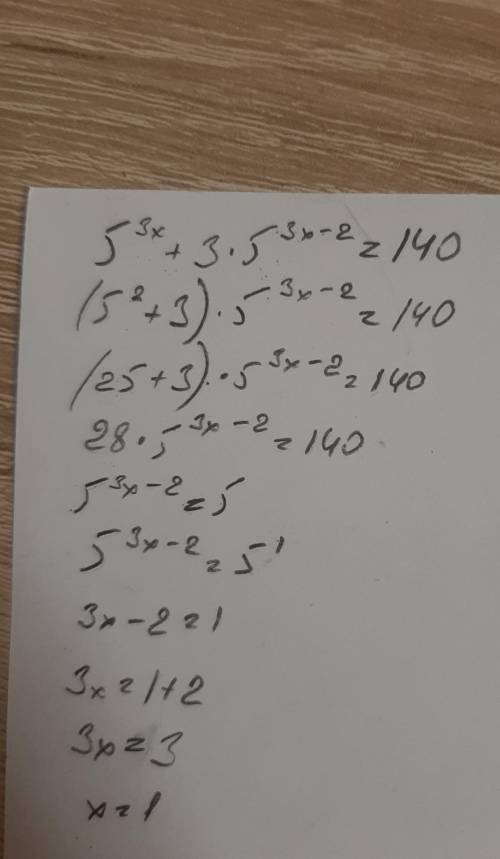 5^{3x} + 3 · 5^{3x-2} = 140
(5^2 + 3) · 5^{3x-2} = 140
(25 + 3) · 5^{3x-2} = 140
28 · 5^{3x-2} = 140
5^{3x-2} = 5
5^{3x-2} = 5^1
3x - 2 = 1
3x = 1 + 2
3x = 3
x = 1